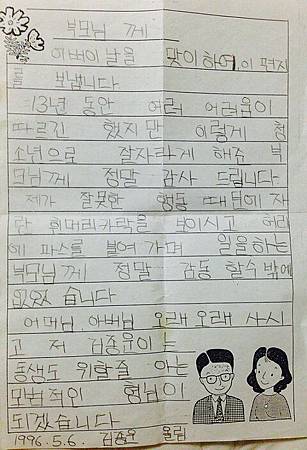 부모님 께
어버이 날을 맞이하여 이 편지
를 보냅니다
13년 동안 여러 어려움이
따르긴 했지만 이렇게 청
소년으로 잘자라게 해주 부
모님께 정말 감사 드립니다
제가 잘못한 행동 때문에 자
란 흰머리카락을 보이시고 허리
에 파스를 붙여 가며 일을하는
부모님께 정말 감동 할수 밖에
없었 습니다
어머님, 아버님 오래 오래 사시
고 저 김종운이는
동생도 위할줄 아는
모범적인 형님이
되겠습니다
1996. 5. 6. 김종운 올림